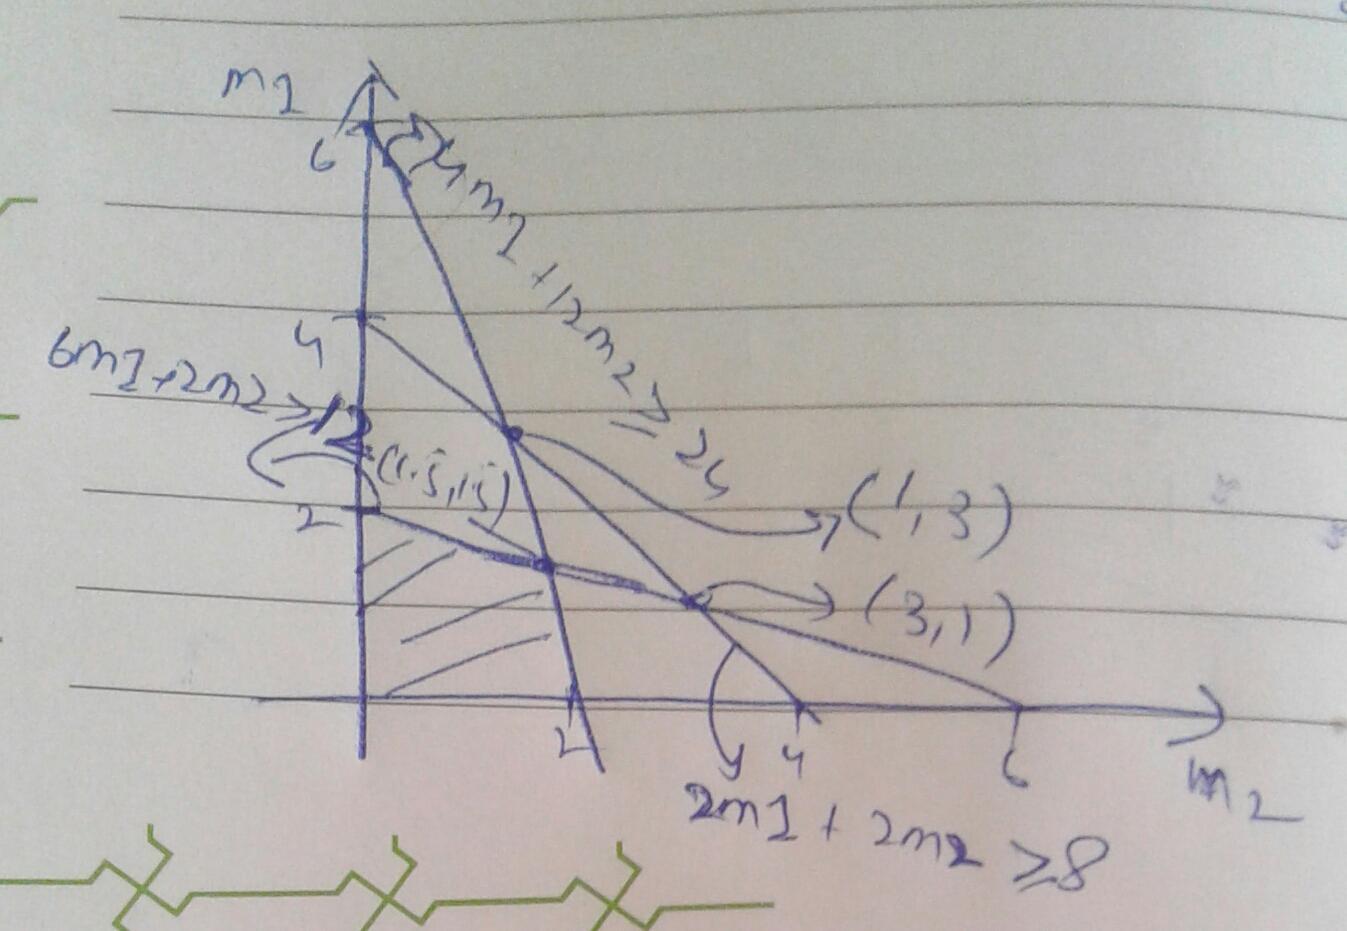 m1
6
4m1 + 12m2 ≥ 24
4
6m1 + 2m2 ≥ 12
(1.5, 1.5)
2
(1, 3)
(3, 1)
2
4
6
m2
2m1 + 2m2 ≥ 8